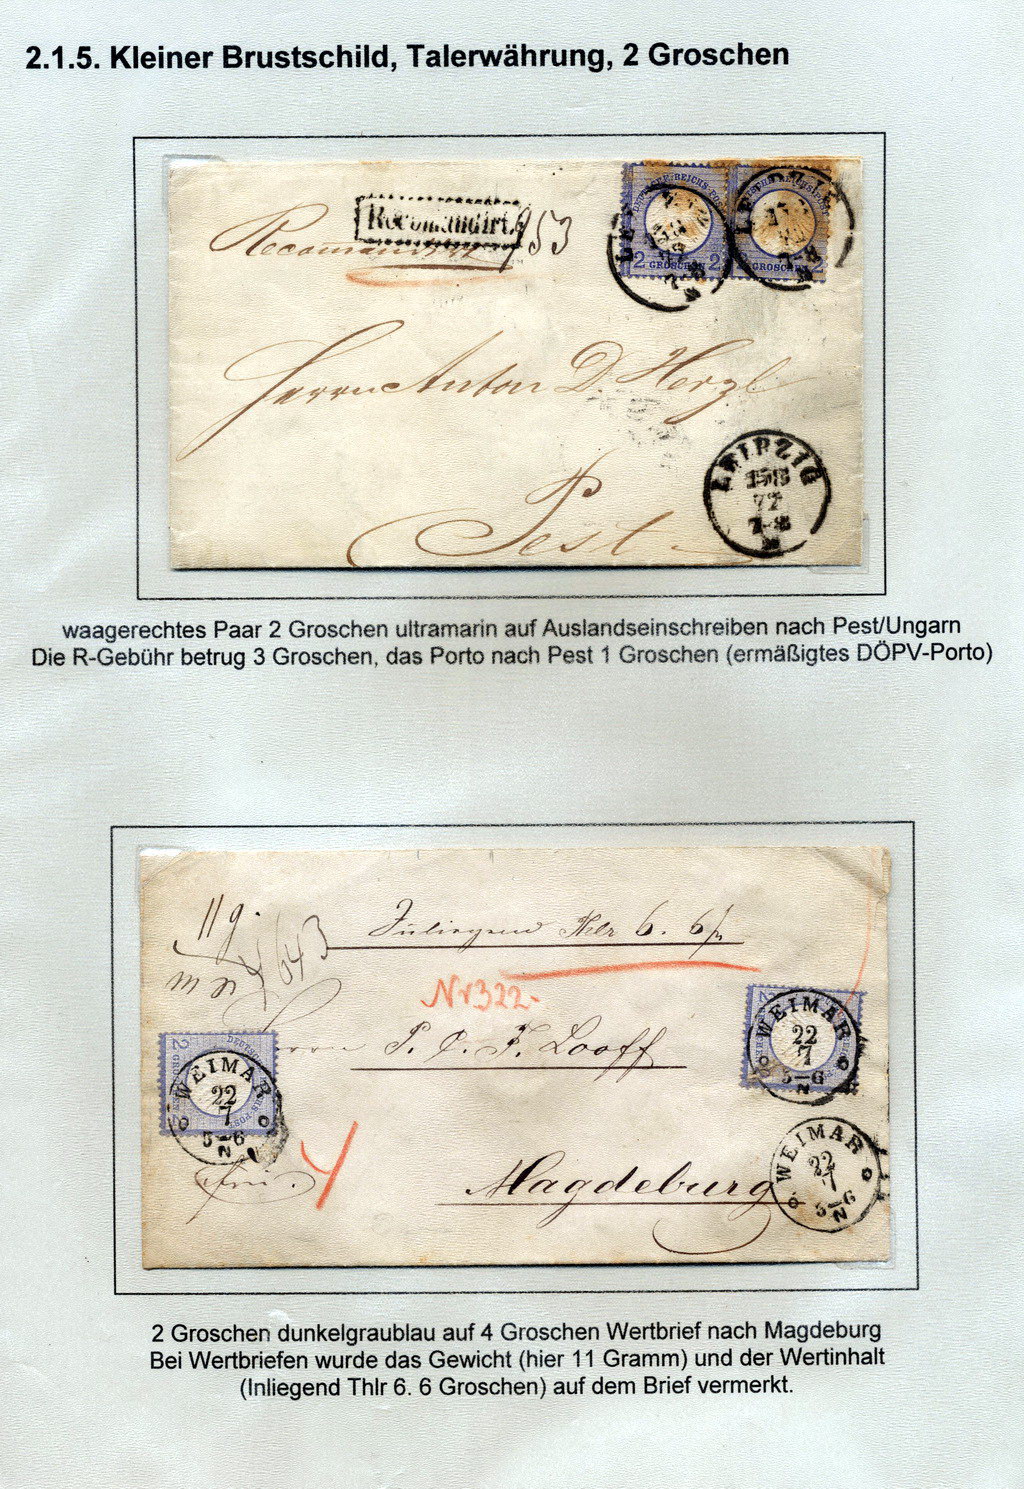 2.1.5. Kleiner Brustschild, Talerwährung, 2 Groschen
Recomandirt.
Recomandirt 953
DEUTSCHE REICHS-POST
2 GROSCHEN 2
2 GROSCHEN 2
LEIPZIG
Herrn Anton D. Herzl
LEIPZIG
15 8
72
7-8
N
Pest
waagerechtes Paar 2 Groschen ultramarin auf Auslandseinschreiben nach Pest/Ungarn
Die R-Gebühr betrug 3 Groschen, das Porto nach Pest 1 Groschen (ermäßigtes DÖPV-Porto)
11 g.
Inliegend Thlr 6. 6
643
Nr 322.
WEIMAR
22
7
5-6
N
Herrn P. C. F. Looff
WEIMAR
22
7
5-6
N
4
Magdeburg
WEIMAR
22
7
5-6
N
2 Groschen dunkelgraublau auf 4 Groschen Wertbrief nach Magdeburg
Bei Wertbriefen wurde das Gewicht (hier 11 Gramm) und der Wertinhalt
(Inliegend Thlr 6. 6 Groschen) auf dem Brief vermerkt.